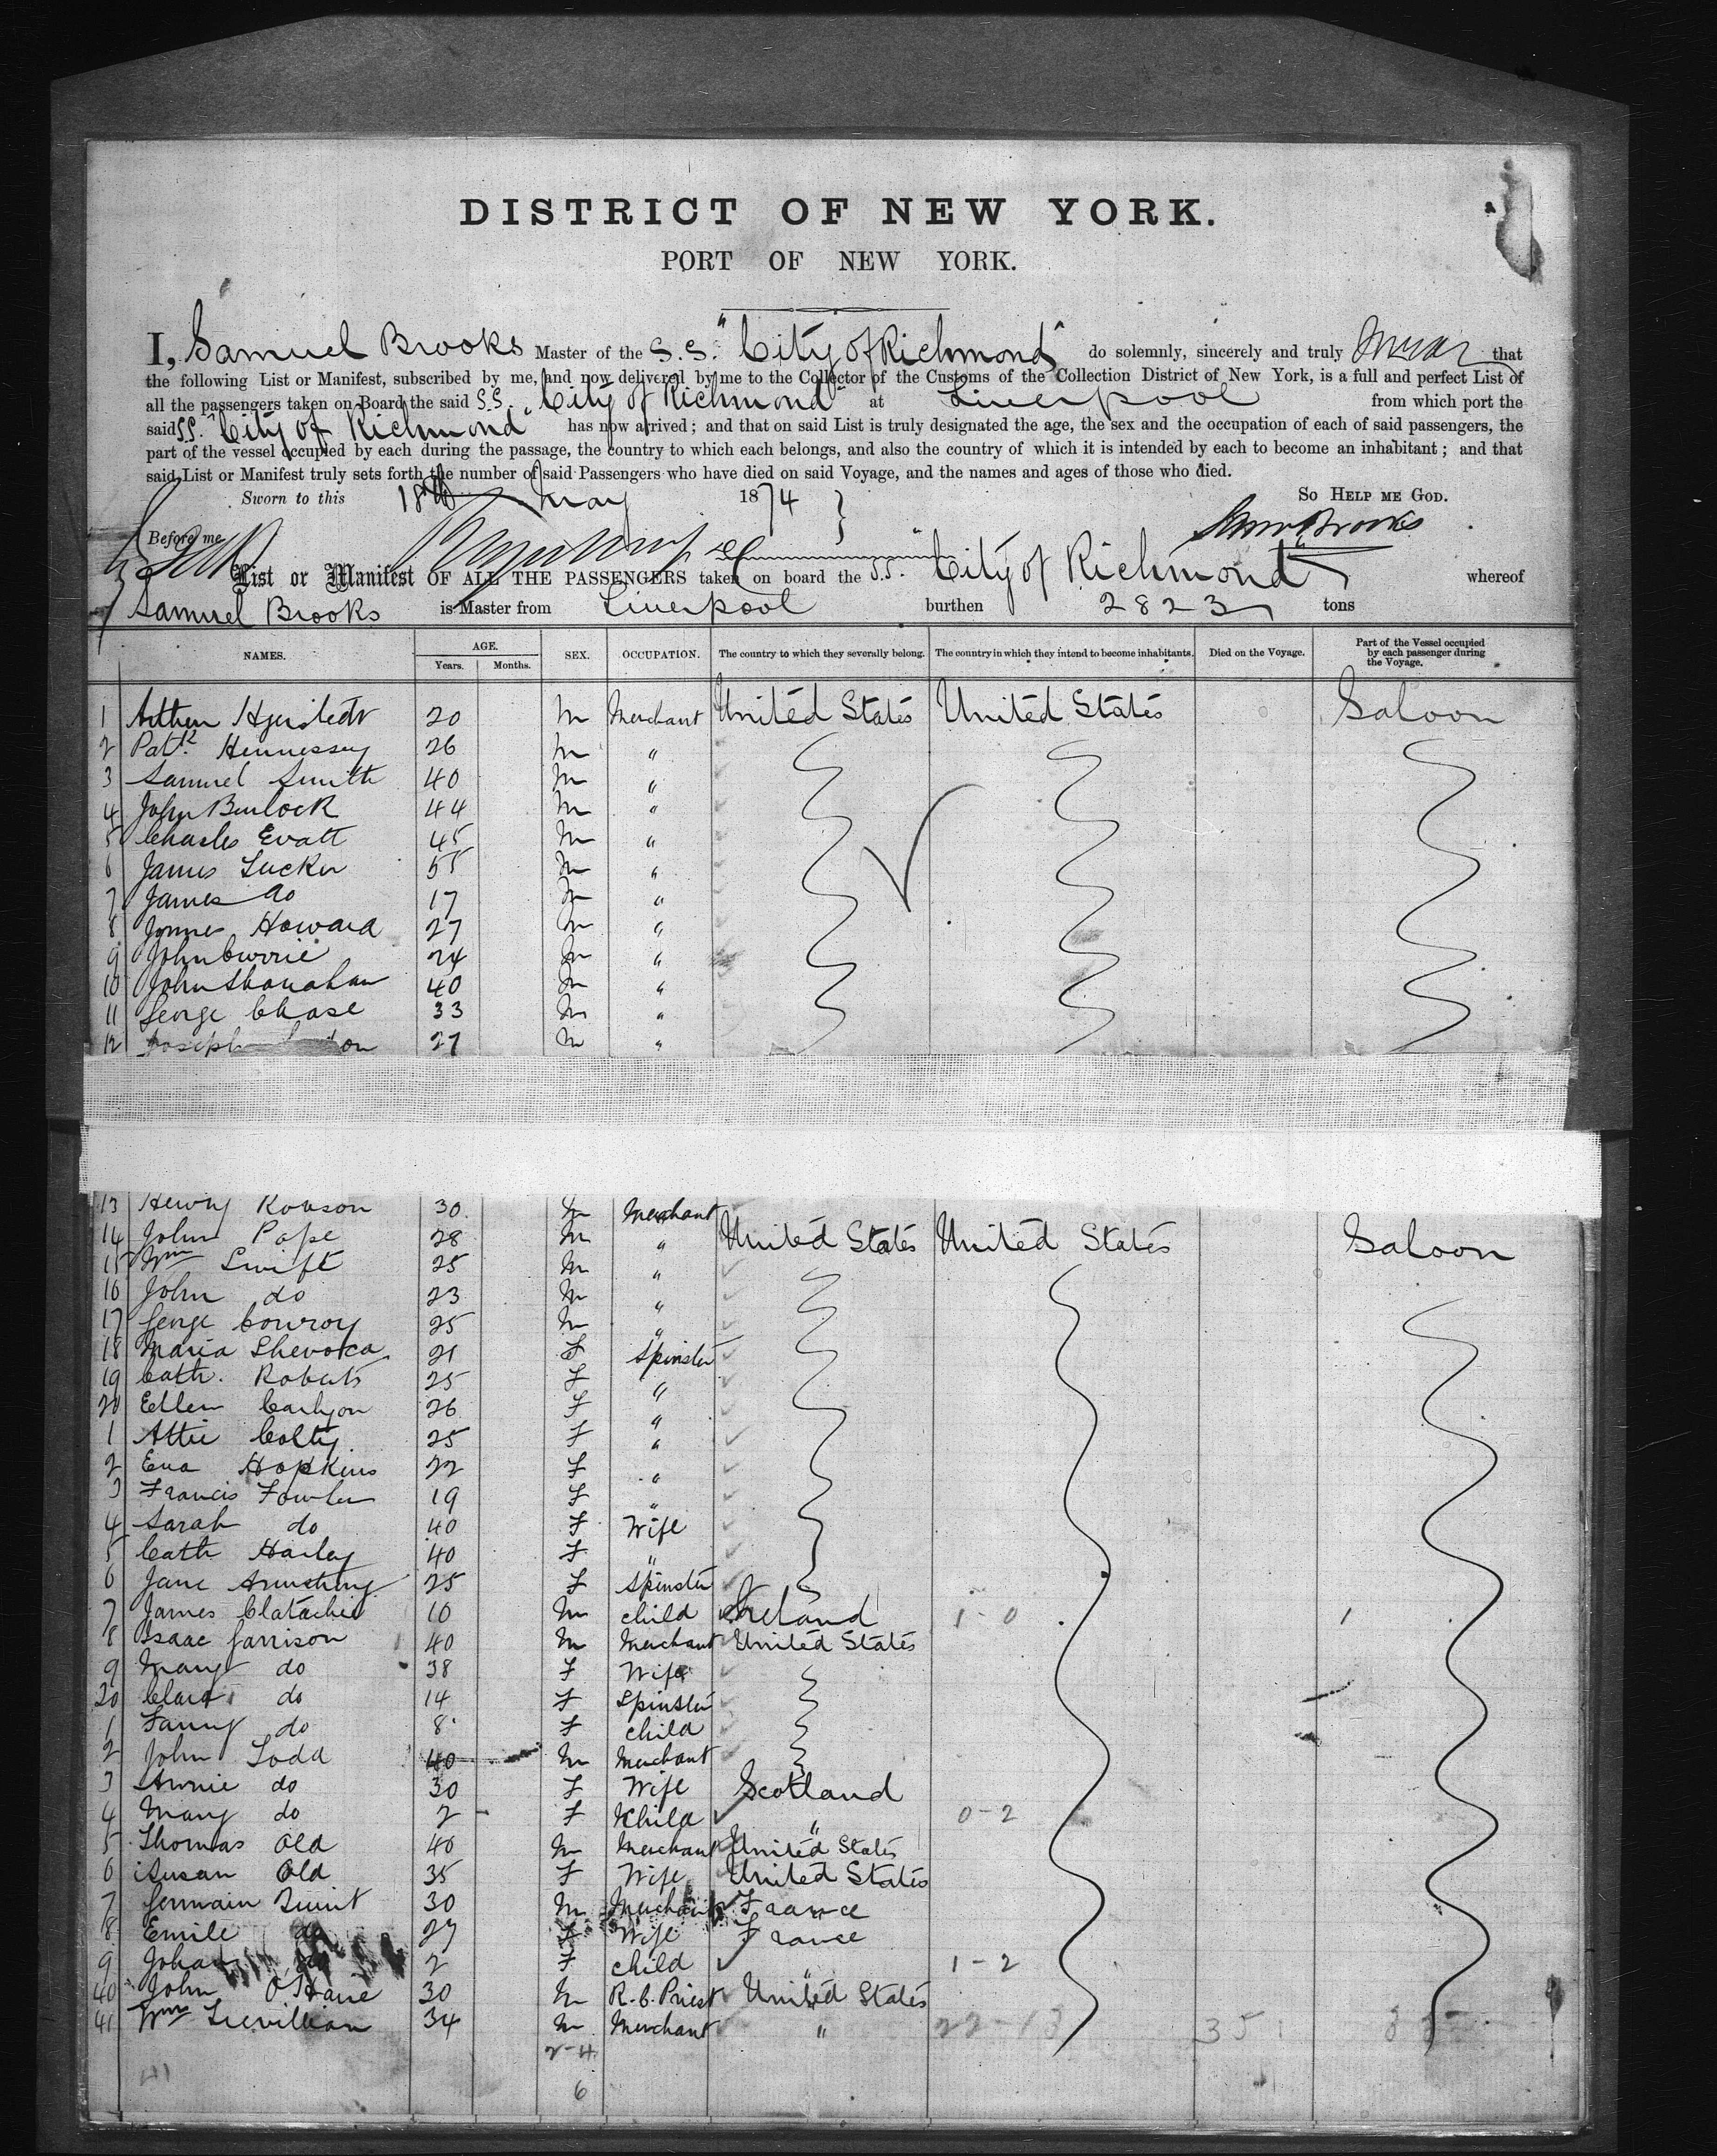 DISTRICT OF NEW YORK.
PORT OF NEW YORK.
I, Samuel Brooks Master of the S.S. "City of Richmond" do solemnly, sincerely and truly swear that
the following List or Manifest, subscribed by me, and now delivered by me to the Collector of the Customs of the Collection District of New York, is a full and perfect List of
all the passengers taken on Board the said S.S. "City of Richmond" at Liverpool from which port the
said S.S. "City of Richmond" has now arrived; and that on said List is truly designated the age, the sex and the occupation of each of said passengers, the
part of the vessel occupied by each during the passage, the country to which each belongs, and also the country of which it is intended by each to become an inhabitant; and that
said List or Manifest truly sets forth the number of said Passengers who have died on said Voyage, and the names and ages of those who died.
Sworn to this 18th May 1874 } So Help me God.
Before me Saml Brooks
List or Manifest OF ALL THE PASSENGERS taken on board the S.S. "City of Richmond" whereof
Samuel Brooks is Master from Liverpool burthen 2823 tons
NAMES. AGE. Years. Months. SEX. OCCUPATION. The country to which they severally belong. The country in which they intend to become inhabitants. Died on the Voyage. Part of the Vessel occupied by each passenger during the Voyage.
1 20 M Merchant United States United States Saloon
2 Patk. Hennessey 26 M "
3 Samuel Smith 40 M "
4 John Burlock 44 M "
5 Charles Evatt 45 M "
6 James Tucker 55 M "
7 James do 17 M "
8 Howard 27 M "
9 John Currie 24 M "
10 John Shanahan 40 M "
11 George Chase 33 M "
12 Joseph 27 M "
13 Henry Robson 30 M Merchant
14 John Pope 28 M " United States United States Saloon
15 Wm Swift 25 M "
16 John do 23 M "
17 George Conroy 25 M "
18 Maria 21 F Spinster
19 Cath. Roberts 25 F "
20 Ellen Carlyon 26 F "
1 Attie 25 F "
2 Eva Hopkins 22 F "
3 Francis Fowler 19 F "
4 Sarah do 40 F Wife
5 Cath Harley 40 F "
6 Jane Armstrong 25 F Spinster
7 James 10 M child Ireland 1-0 1
8 Isaac Garrison 40 M Merchant United States
9 Mary do 38 F Wife
30 Clara do 14 F Spinster
1 Fanny do 8 F child
2 John Todd 40 M Merchant
3 Annie do 30 F Wife Scotland
4 Mary do 2 - F Child " 0-2
5 Thomas Old 40 M Merchant United States
6 Susan Old 35 F Wife United States
7 Germain 30 M Merchant France
8 Emile do 27 F Wife France
9 do 2 F child " 1-2
40 John O'Hare 30 M R.C. Priest United States
41 Wm Trevillian 34 M Merchant " 22-13 35
2-4
41 6